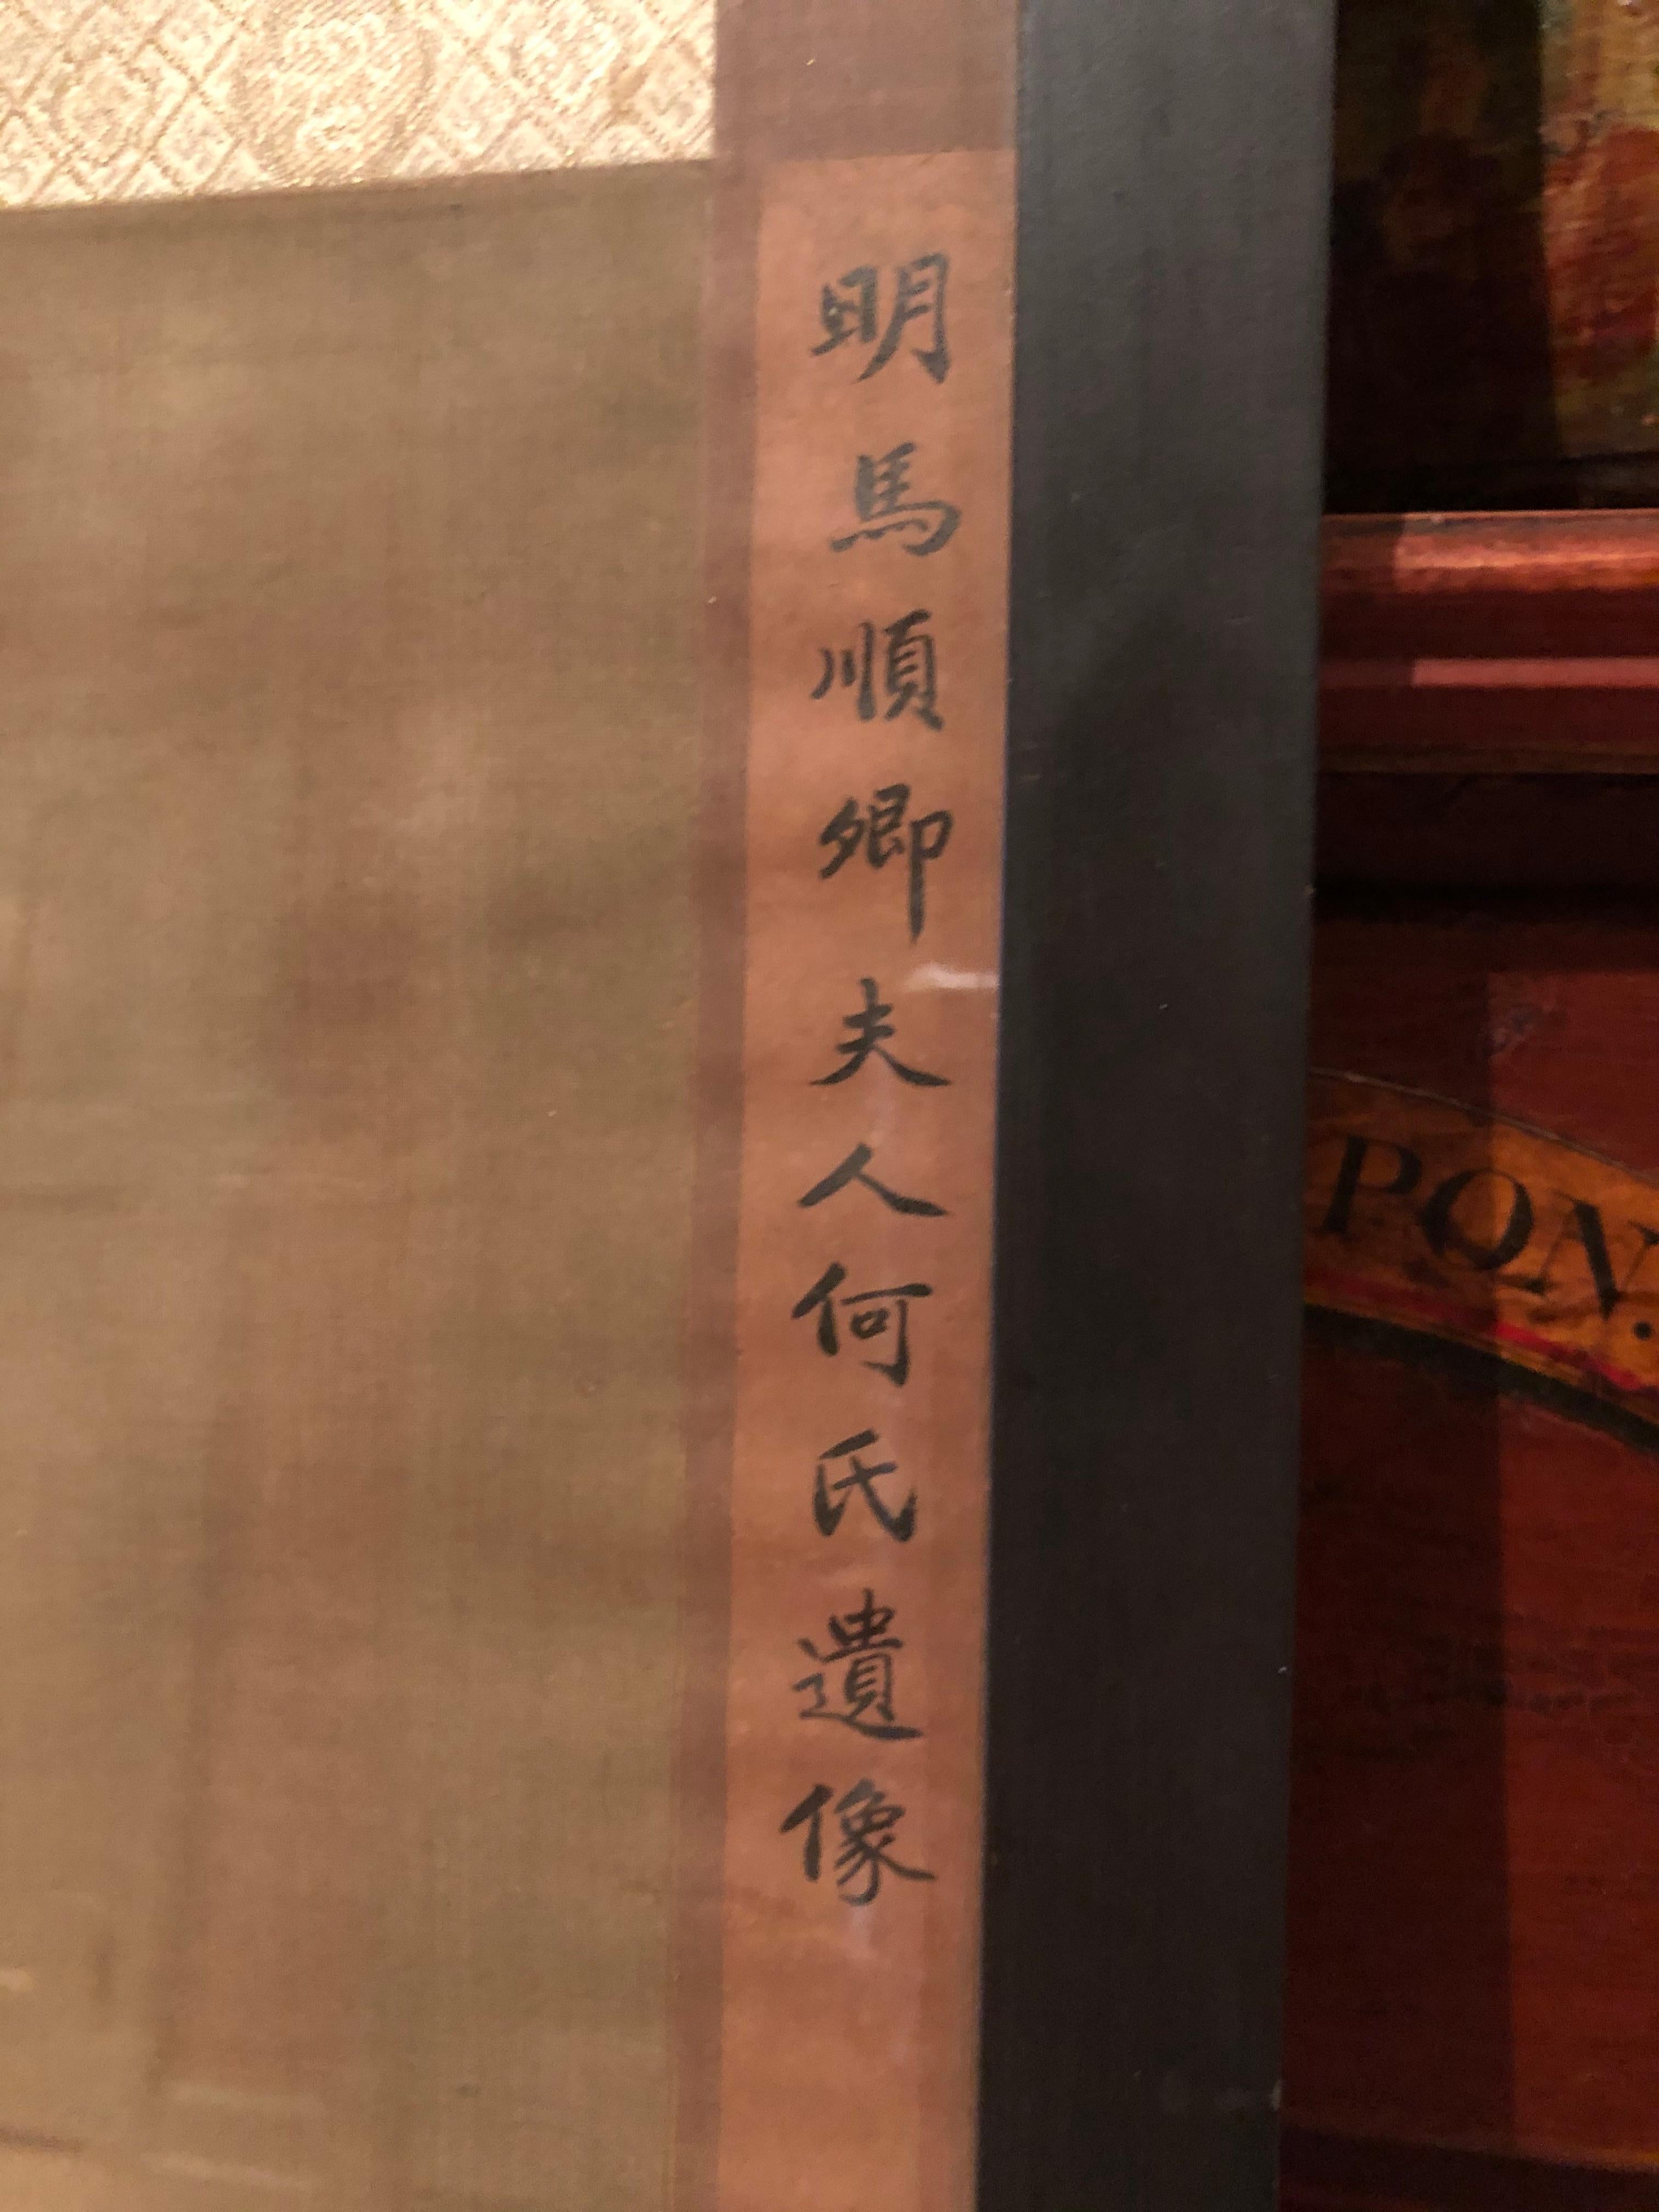 明馬順卿夫人何氏遺像
PON.